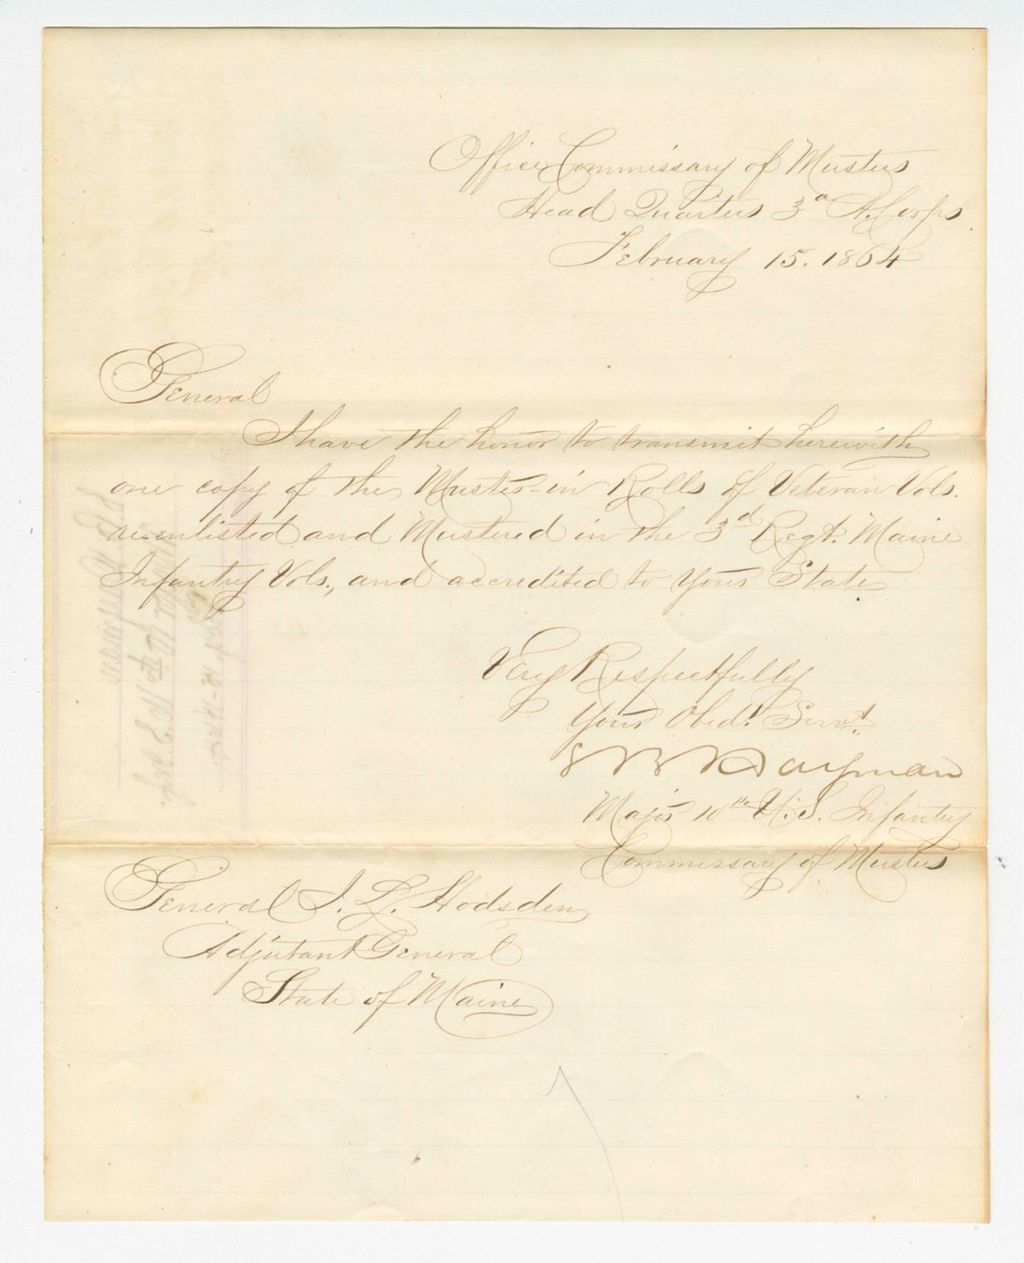 Office Commissary of Musters
Head Quarters 3d A. Corps
February 15. 1864
General
I have the honor to transmit herewith
one copy of the Muster-in Rolls of Veteran Vols.
re-enlisted and Mustered in the 3d Regt. Maine
Infantry Vols., and accredited to your State
Very Respectfully
Your Obedt. Servt.
S B Hayman
Major 10th U.S. Infantry
Commissary of Musters
General J. L. Hodsden
Adjutant General
State of Maine